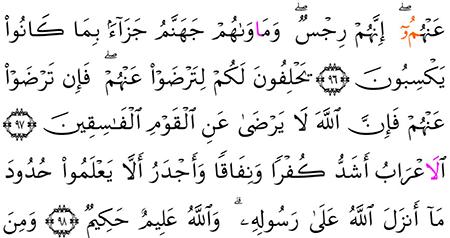 عَنْهُمُۥٓۖ إِنَّهُمْ رِجْسٞۖ وَمَاوٜىٰهُمْ جَهَنَّمُ جَزَآءَۢ بِمَا كَانُواْ
يَكْسِبُونَۖ ٩٦ يَحْلِفُونَ لَكُمْ لِتَرْضَوْاْ عَنْهُمْۖ فَإِن تَرْضَوْاْ
عَنْهُمْ فَإِنَّ اَ۬للَّهَ لَا يَرْضَىٰ عَنِ اِ۬لْقَوْمِ اِ۬لْفَٰسِقِينَۖ ٩٧
اَ۬لَاعْرَابُ أَشَدُّ كُفْراٗ وَنِفَاقاٗ وَأَجْدَرُ أَلَّا يَعْلَمُواْ حُدُودَ
مَآ أَنزَلَ اَ۬للَّهُ عَلَىٰ رَسُولِهِۦۖ وَاللَّهُ عَلِيمٌ حَكِيمٞۖ ٩٨ وَمِنَ